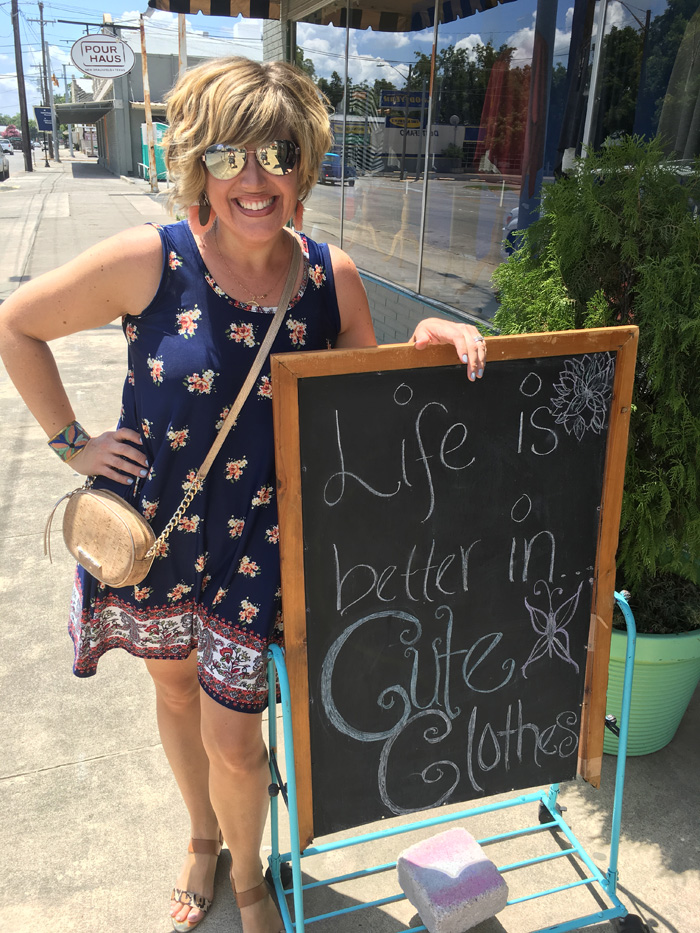 POUR
HAUS
Life is
better in...
Cute
Clothes